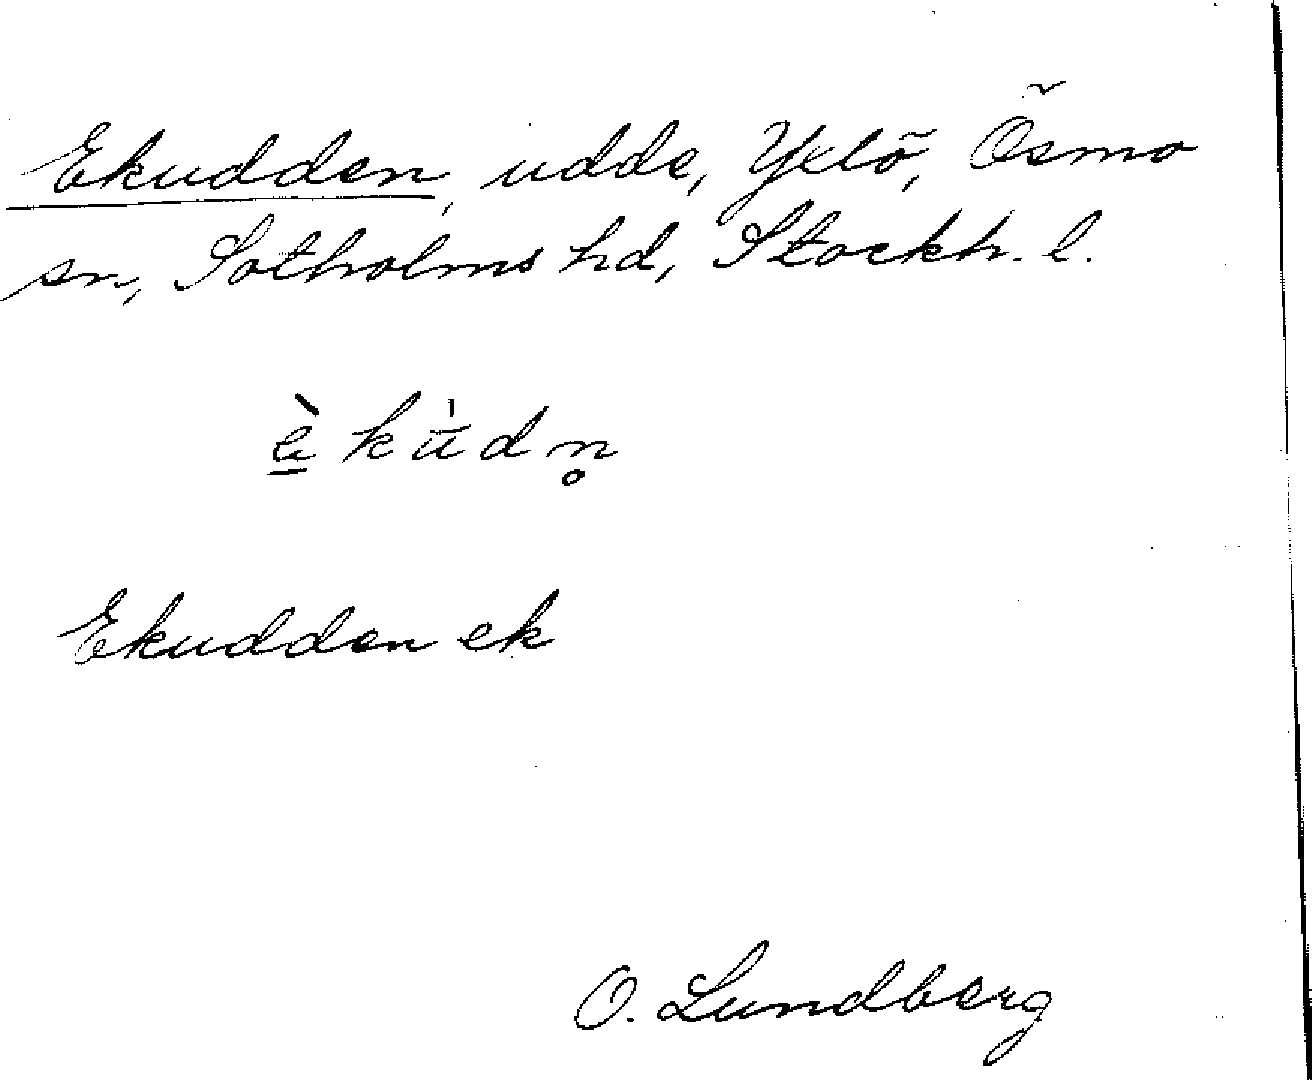 Ekudden, udde, Yxlö, Ösmo
sn, Sotholms hd, Stockh. l.
è̱ kǜdn̥
Ekudden ek
O. Lundberg